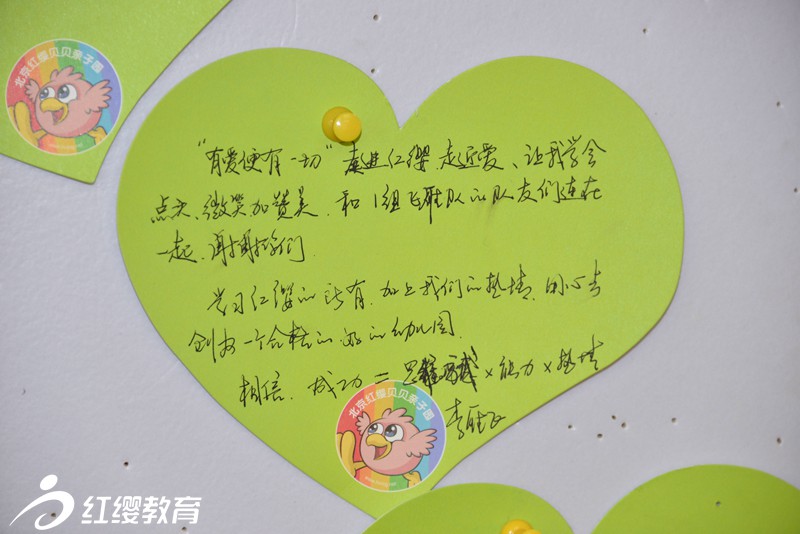 北京红缨贝贝亲子园
"有爱便有一切" 走进红缨、走近爱、让我学会
点头、微笑加赞美、和1组飞雁队的队友们连在
一起、谢谢你们
学习红缨的所有、加上我们的热情、用心去
创办一个合格的 的幼儿园
相信、成功=思维 × 能力 × 热情
李
北京红缨贝贝亲子园
红缨教育